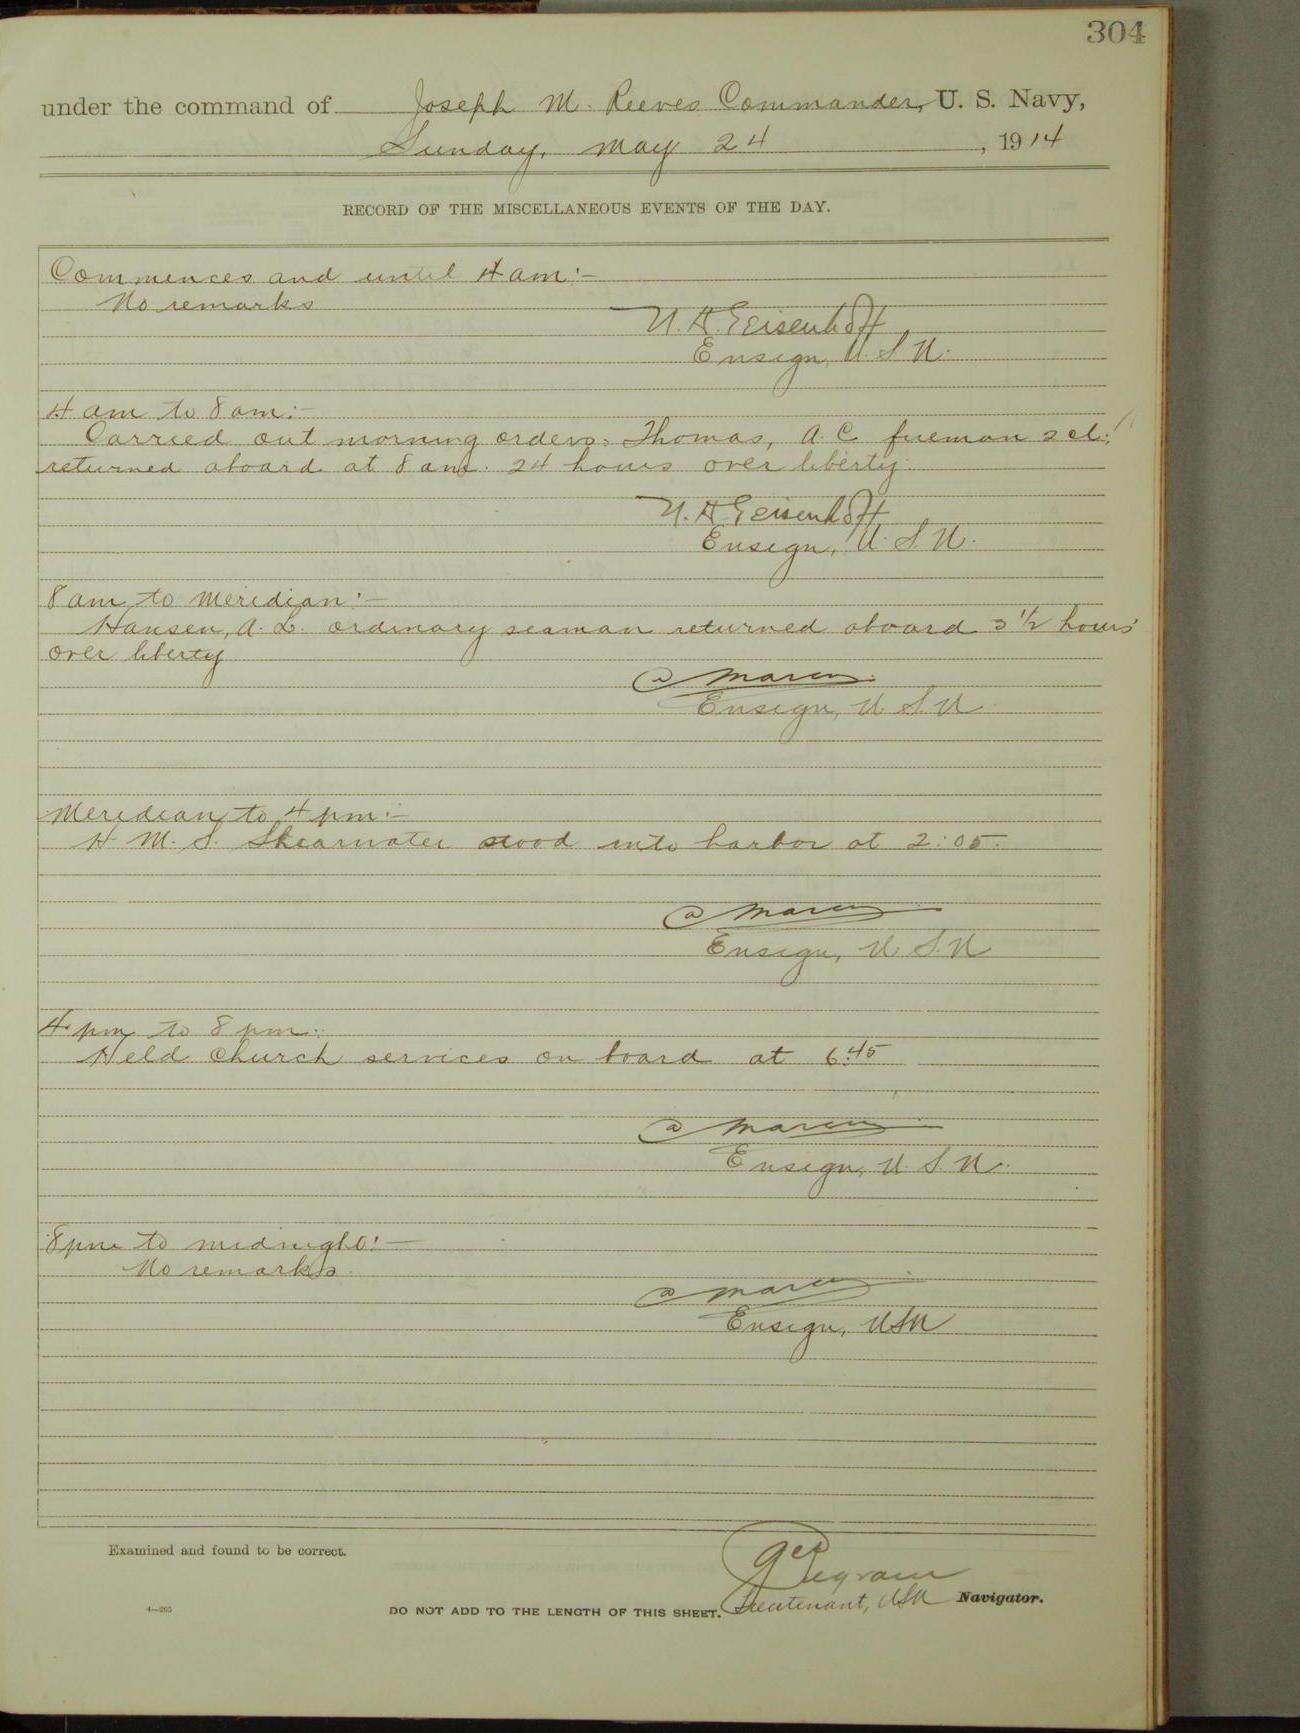 304
under the command of Joseph M. Reeves Commander, U. S. Navy,
Sunday, May 24, 1914
RECORD OF THE MISCELLANEOUS EVENTS OF THE DAY.
Commences and until 4 am:-
No remarks
Ensign, U.S.N.
4 am to 8 am:-
Carried out morning orders: Thomas, A.C. fireman 2 cl.
returned aboard at 8 am. 24 hours over liberty.
Ensign, U.S.N.
8 am to Meridian:-
Hansen, A.L. ordinary seaman returned aboard 3 1/2 hours
over liberty
Ensign, U.S.N
Meridian to 4 pm:-
H.M.S. Shearwater stood into harbor at 2:05.
Ensign, U.S.N
4 pm to 8 pm:
Held Church services on board at 6:45
Ensign, U.S.N.
8 pm to midnight:-
No remarks.
Ensign, USN
Examined and found to be correct.
Lieutenant, USN Navigator.
4—265
DO NOT ADD TO THE LENGTH OF THIS SHEET.